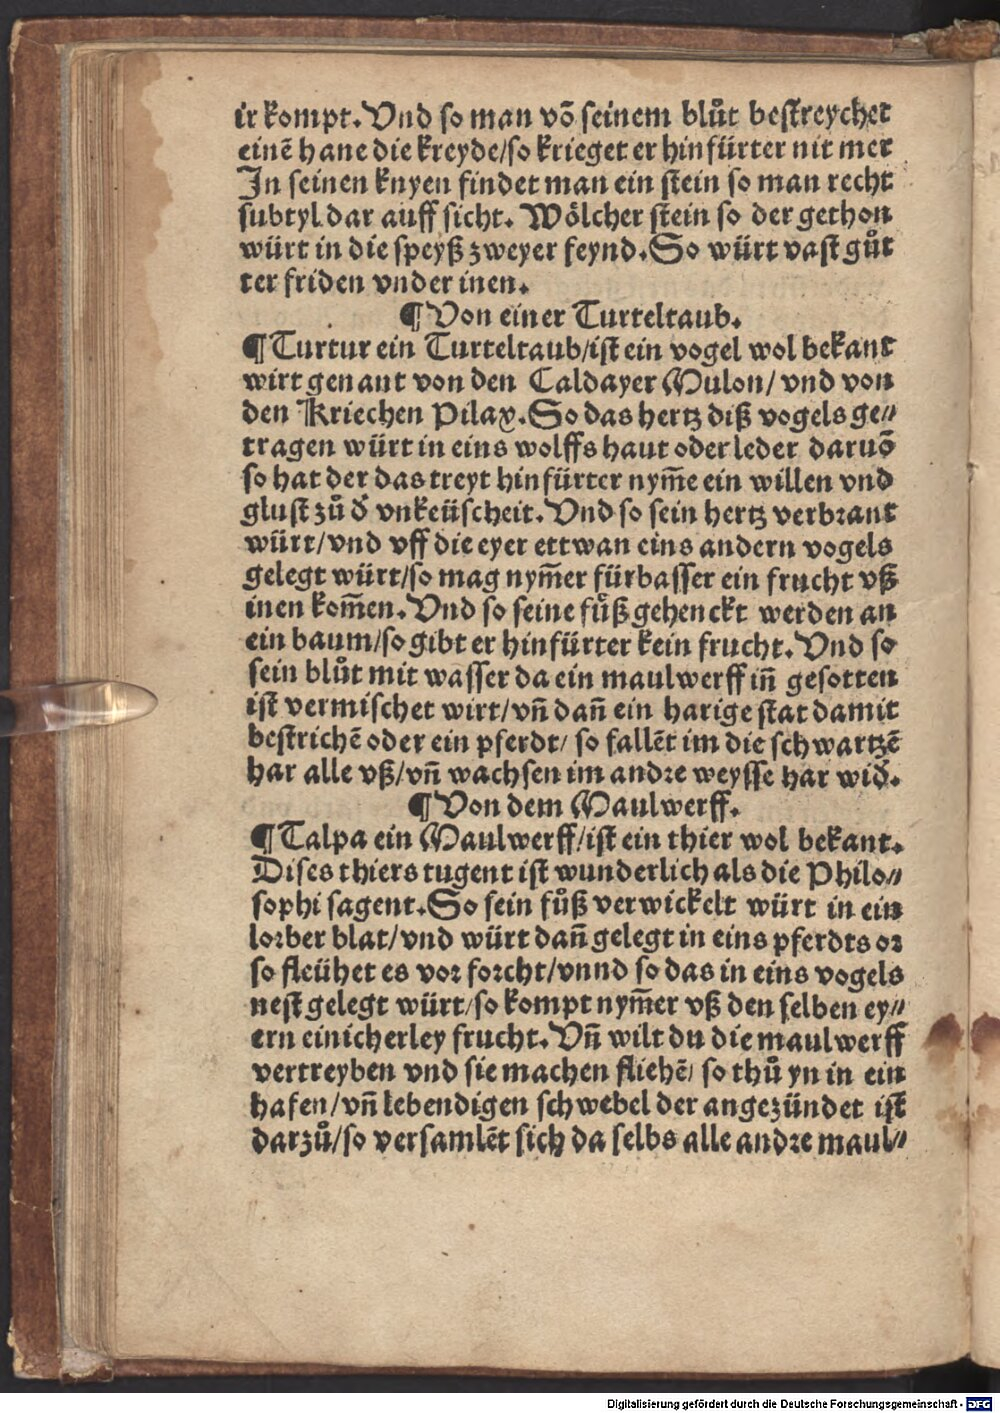 ir kompt. Vnd so man võ seinem blůt bestreychet
einẽ hane die kreyde/so krieget er hinfürter nit mer
In seinen knyen findet man ein stein so man recht
subtyl dar auff sicht. Wölcher stein so der gethon
würt in die speyß zweyer feynd. So würt vast gůt
ter friden vnder inen.
¶ Von einer Turteltaub.
¶ Turtur ein Turteltaub/ist ein vogel wol bekant
wirt genant von den Caldayer Mulon/ vnd von
den Kriechen Pilax. So das hertz diß vogels ge⸗
tragen würt in eins wolffs haut oder leder daruõ
so hat der das treyt hinfürter nym̃e ein willen vnd
glust zů d̕ vnkeüscheit. Vnd so sein hertz verbrant
würt/vnd vff die eyer ettwan eins andern vogels
gelegt würt/so mag nym̃er fürbasser ein frucht vß
inen kom̃en. Vnd so seine fůß gehenckt werden an
ein baum/so gibt er hinfürter kein frucht. Vnd so
sein blůt mit wasser da ein maulwerff iñ gesotten
ist vermischet wirt/vñ dañ ein harige stat damit
bestrichẽ oder ein pferdt/ so fallẽt im die schwartzẽ
har alle vß/vñ wachsen im andre weysse har wid̕.
¶ Von dem Maulwerff.
¶ Talpa ein Maulwerff/ist ein thier wol bekant.
Dises thiers tugent ist wunderlich als die Philo⸗
sophi sagent. So sein fůß verwickelt würt in ein
lorber blat/vnd würt dañ gelegt in eins pferdts or
so fleühet es vor forcht/vnnd so das in eins vogels
nest gelegt würt/so kompt nym̃er vß den selben ey⸗
ern einicherley frucht. Vñ wilt du die maulwerff
vertreyben vnd sie machen fliehẽ/ so thů yn in ein
hafen/vñ lebendigen schwebel der angezündet ist
darzů/so versamlẽt sich da selbs alle andre maul⸗
Digitalisierung gefördert durch die Deutsche Forschungsgemeinschaft - DFG